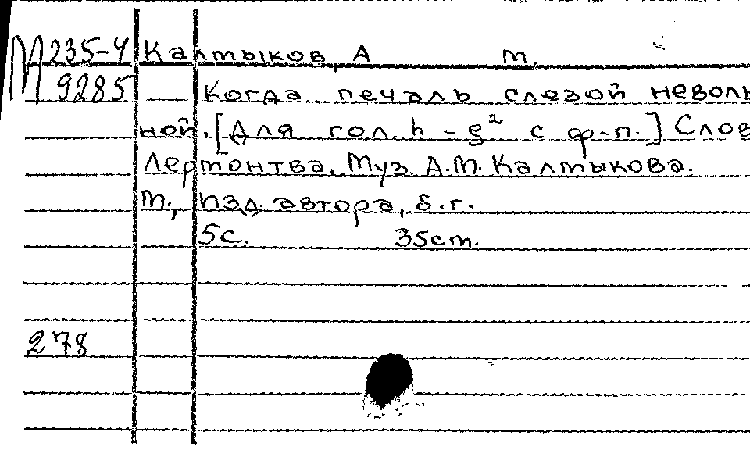 М 235-4 Калтыков, А м.
9285 Когда печаль слезой неволь
ной. [Для гол. h - g² с ф-п.] Слов
Лермонтва. Муз А.М. Калтыкова.
м., изд. автора, б.г.
5с. 35см.
278